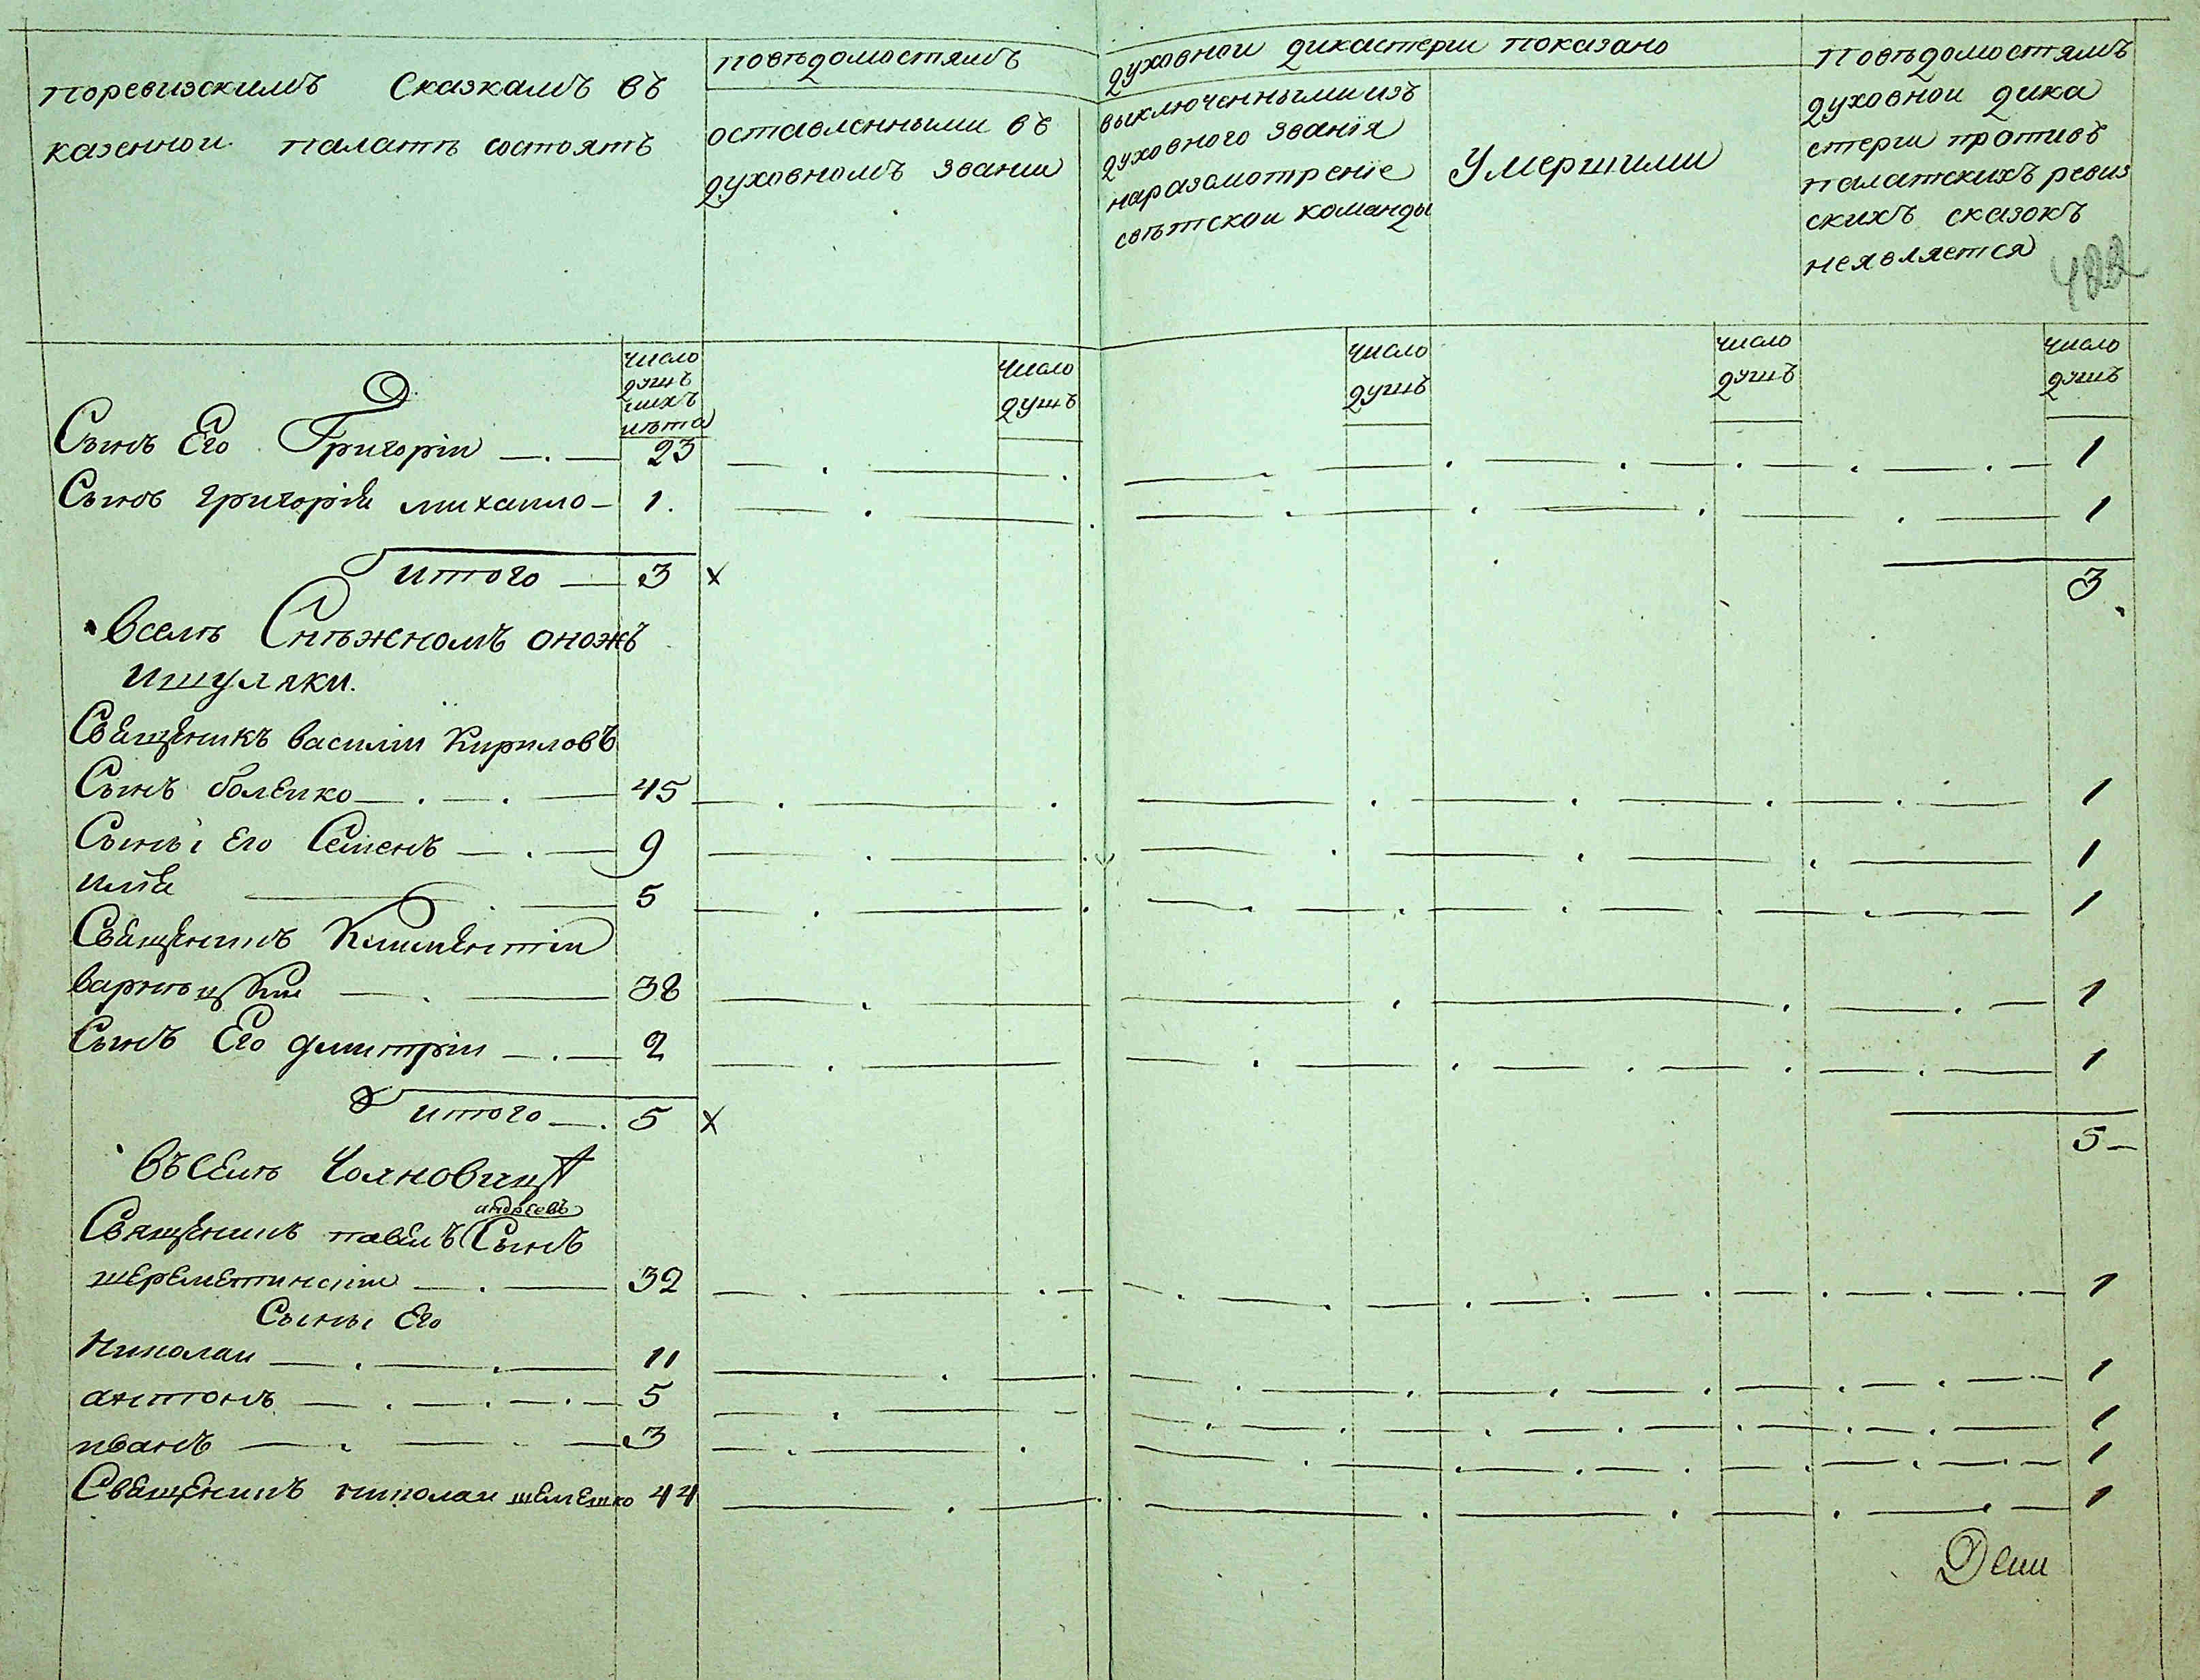 поревизскимъ Сказкамъ въ
казеннои палатѣ состоятъ
повѣдомостямъ
духовнои дикастерии показано
оставленными въ
духовномъ звании
выключенными изъ
духовного званїя
наразсмотренїе
свѣтскои команды
Умершими
повѣдомостямъ
духовнои дика
стерги противъ
палатскихъ ревиз
скихъ сказокъ
неявляется
422
число
душъ
ихъ
лѣта
число
душъ
число
душъ
число
душъ
число
душъ
Сынъ Его Григорїи 23 1
Сынъ григорїя михаило 1. 1
итого 3 х 3
Вселѣ Снѣжномъ оножъ
ишуляки.
Священикъ василїи Кириловъ
Сынъ болейко 45 1
Сыны Его Семенъ 9 1
илїя 5 1
Священикъ Климентїи
варнѣцкїи 38 1
Сынъ Его димитрїи 2 1
итого 5 х 5
Въ Селѣ Чолновицѣ
андреевъ
Священикъ павелъ Сынъ
шереметинскїи 32 1
Сыны Его
Николаи 11 1
антонъ 5 1
иванъ 3 1
Священикъ николаи шемешко 44 1